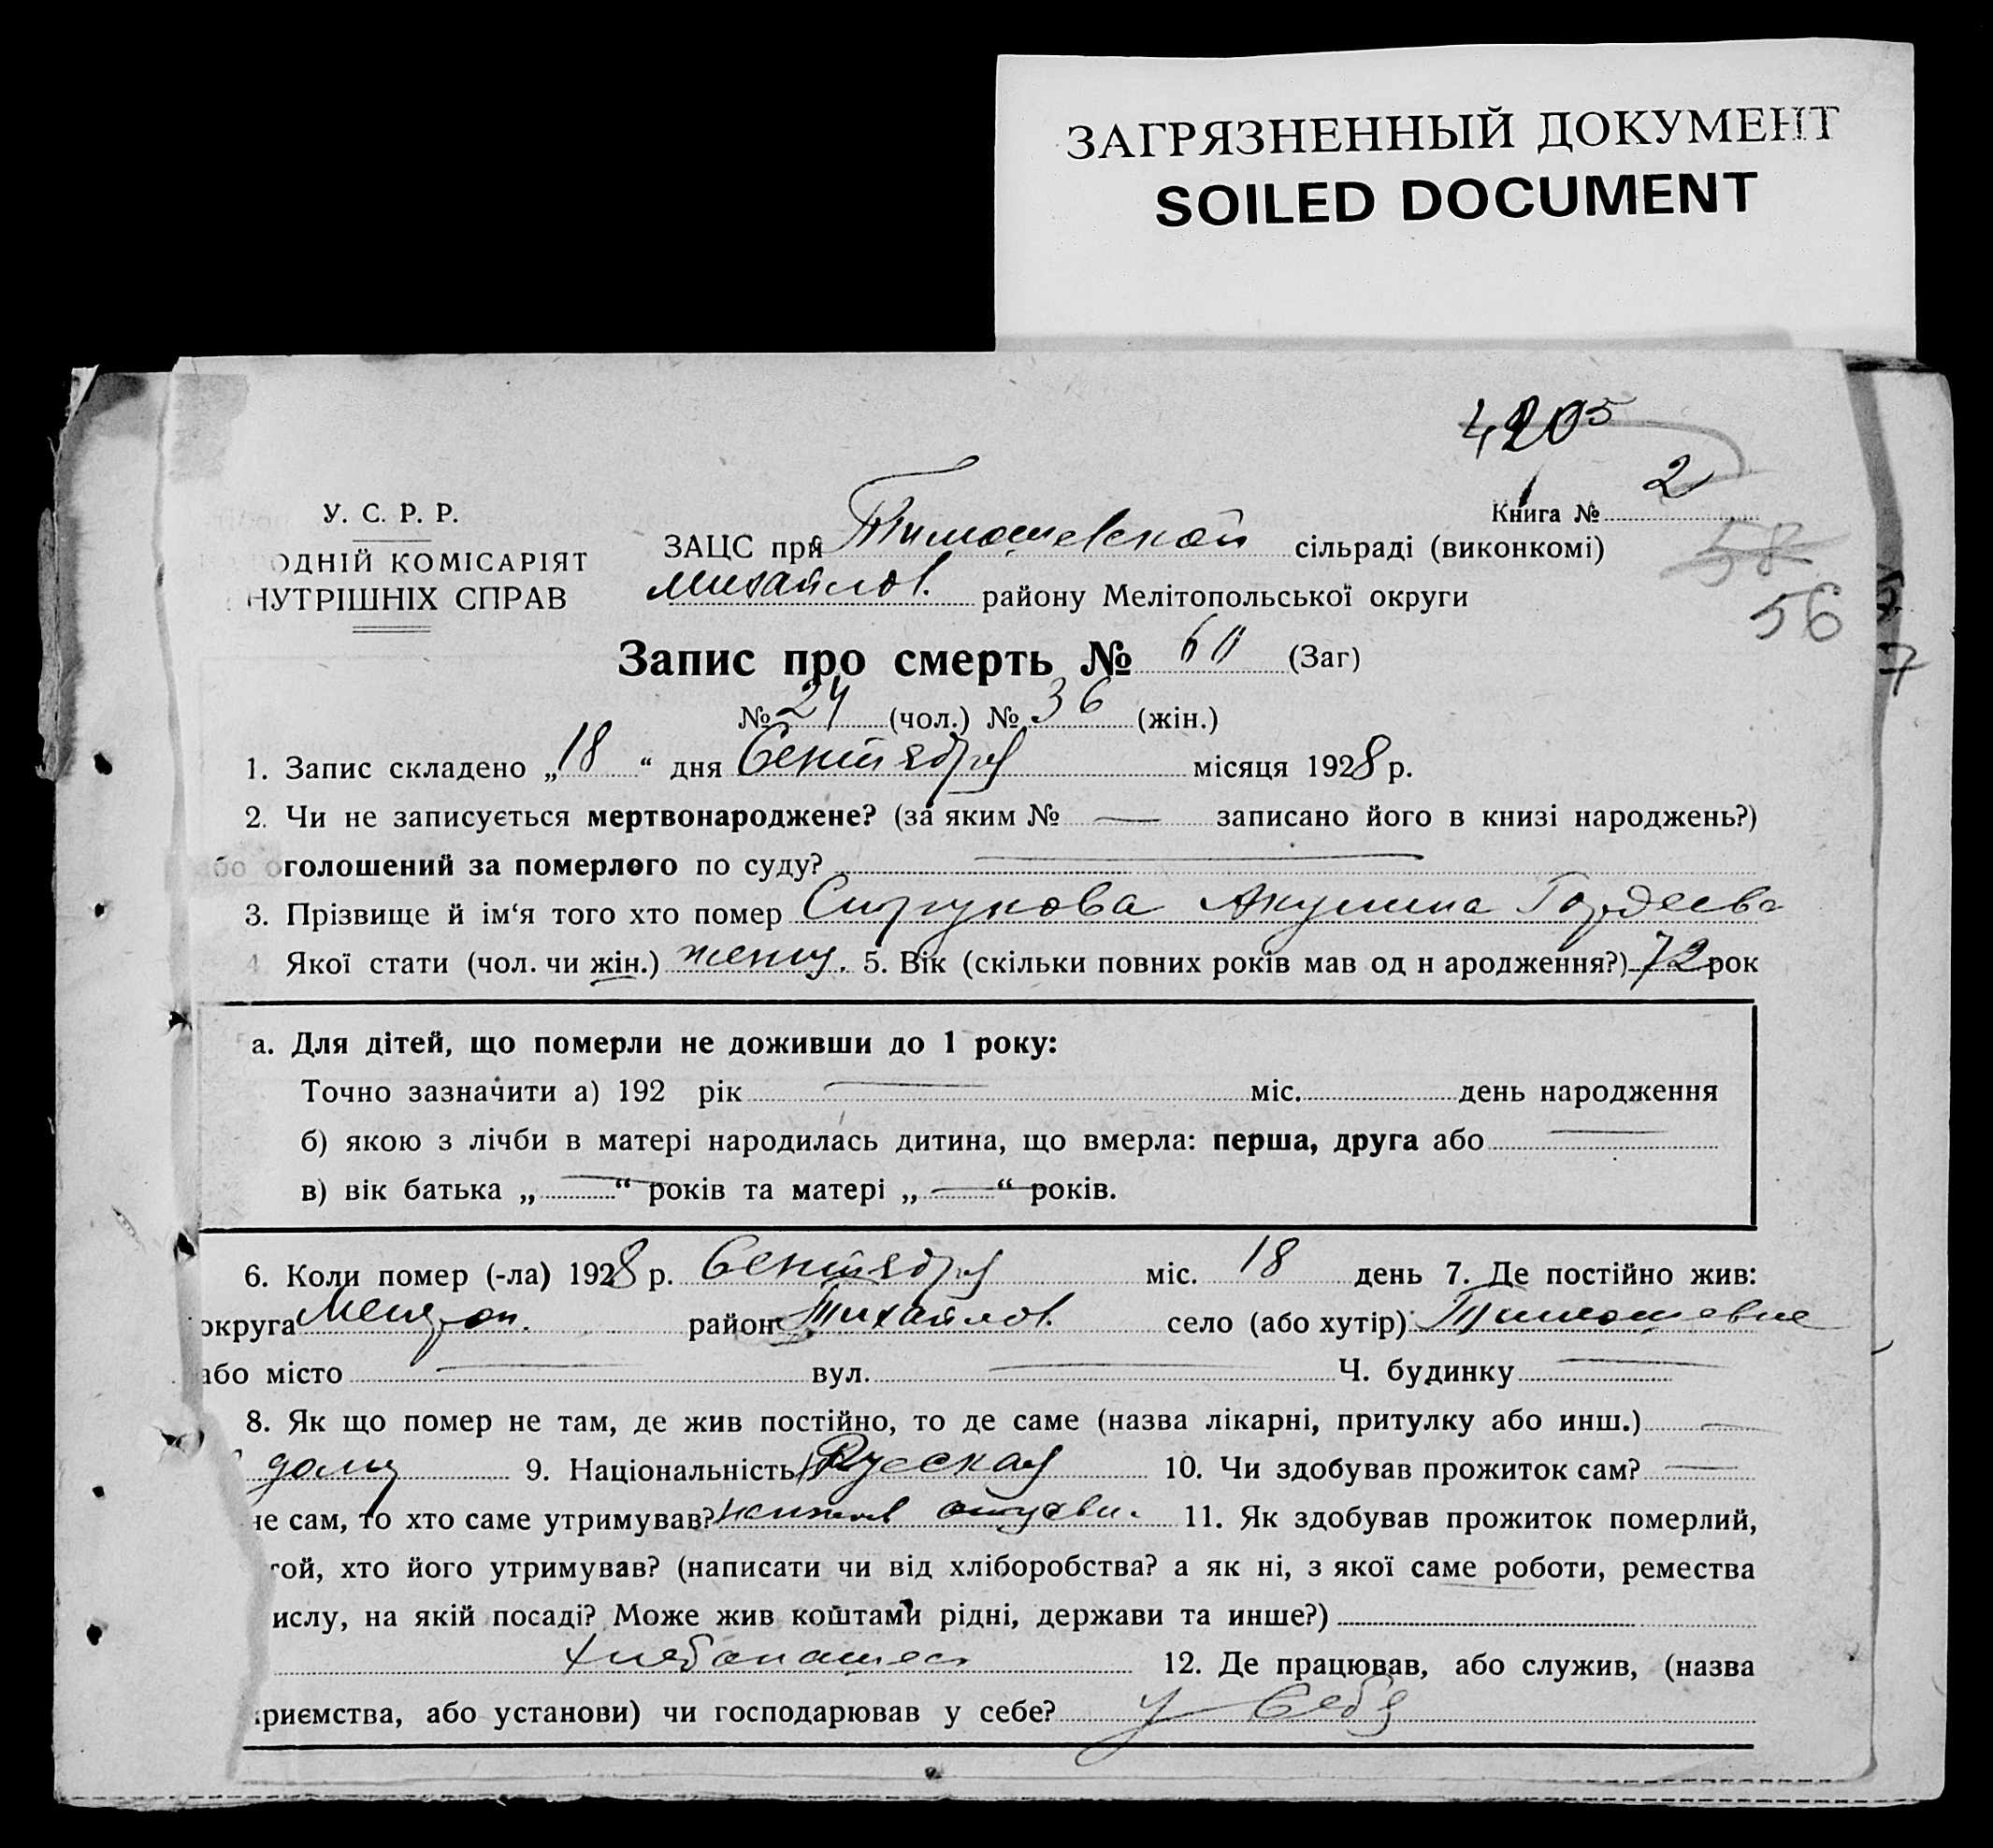 ЗАГРЯЗНЕННЫЙ ДОКУМЕНТ
SOILED DOCUMENT
4205
Книга № 2
58
56
У. С. Р. Р.
ОДНІЙ КОМІСАРІЯТ
НУТРІШНІХ СПРАВ
ЗАЦС при Тимошевской сільраді (виконкомі)
Михайлов. району Мелітопольської округи
7
Запис про смерть № 60 (Заг)
№ 24 (чол.) № 36 (жін.)
1. Запис складено „18“ дня Сентября місяця 1928 р.
2. Чи не записується мертвонароджене? (за яким № — записано його в книзі народжень?)
бо оголошений за померлого по суду? —
3. Прізвище й ім‘я того хто помер Акулина Гордеева
4. Якої стати (чол. чи жін.) женщ. 5. Вік (скільки повних років мав од н ародження?) 72 рок
а. Для дітей, що померли не доживши до 1 року:
Точно зазначити а) 192 рік — міс. день народження
б) якою з лічби в матері народилась дитина, що вмерла: перша, друга або —
в) вік батька „—“ років та матері „—“ років.
6. Коли помер (-ла) 1928 р. Сентября міс. 18 день 7. Де постійно жив:
округа район Михайлов. село (або хутір) Тимошевке
або місто — вул. — Ч. будинку —
8. Як що помер не там, де жив постійно, то де саме (назва лікарні, притулку або инш.) —
дому 9. Національність Русская 10. Чи здобував прожиток сам? —
не сам, то хто саме утримував? 11. Як здобував прожиток померлий,
той, хто його утримував? (написати чи від хліборобства? а як ні, з якої саме роботи, ремества
ислу, на якій посаді? Може жив коштами рідні, держави та инше?)
12. Де працював, або служив, (назва
приємства, або установи) чи господарював у себе? у Себя